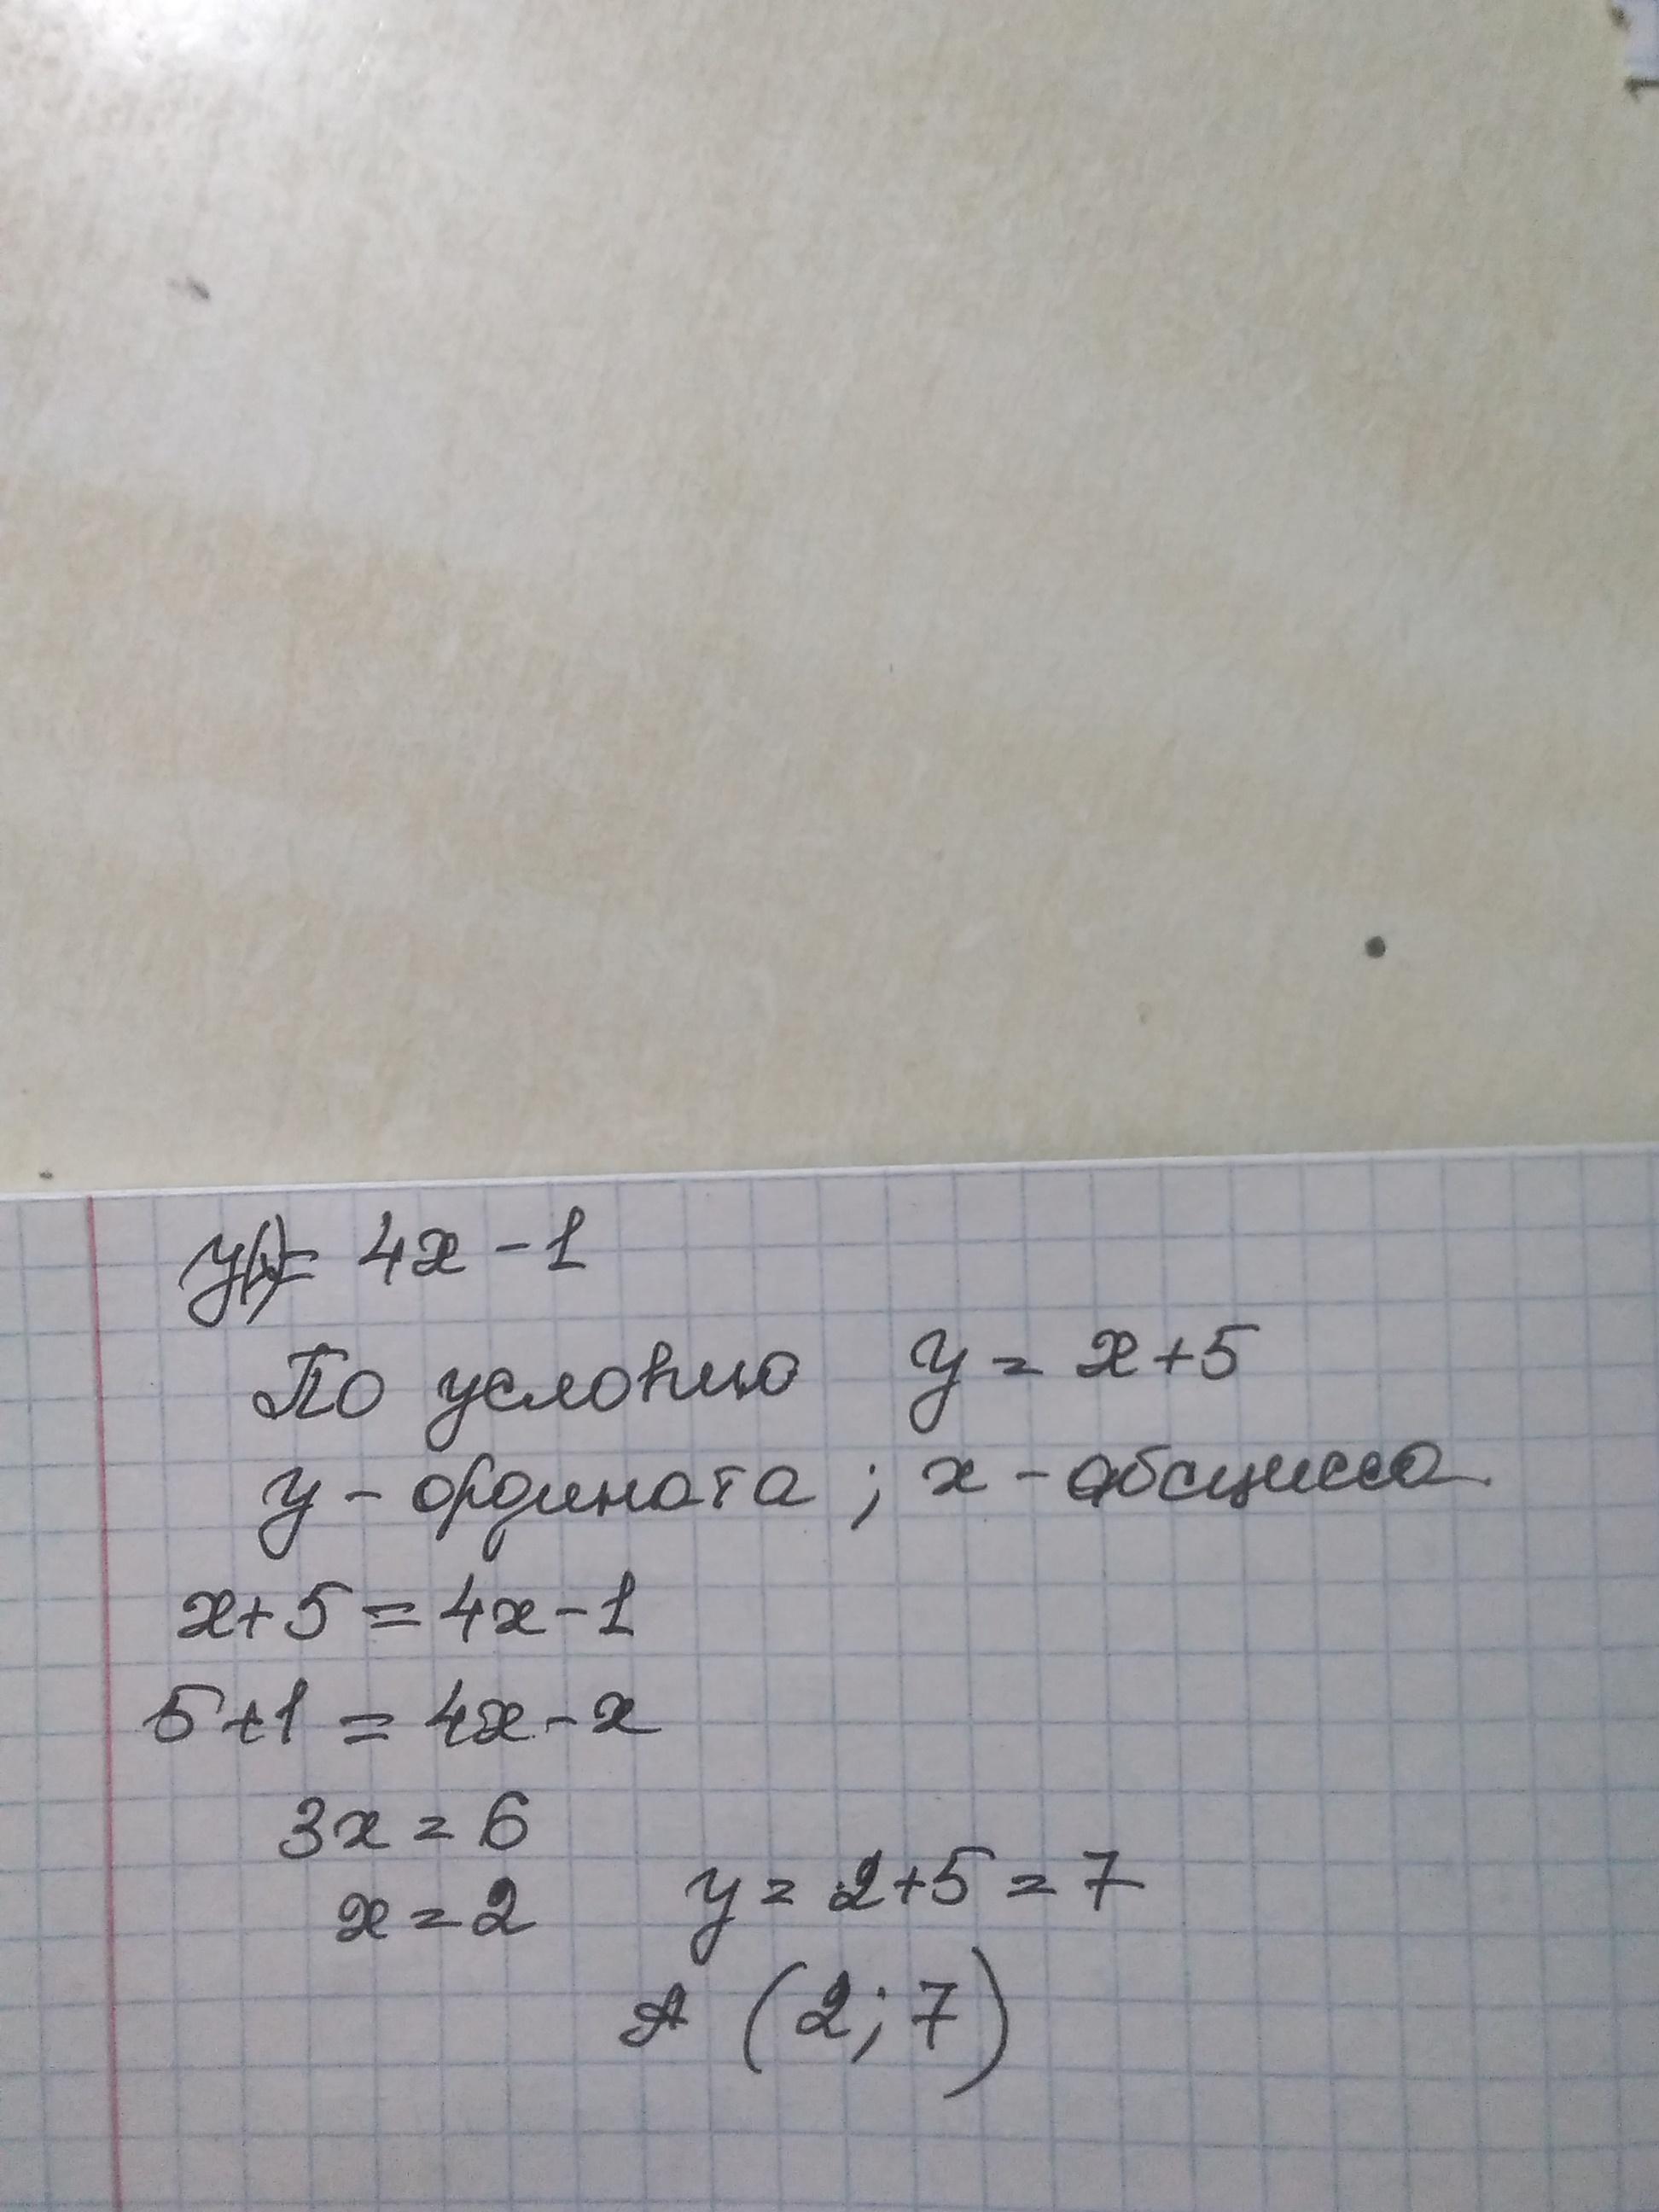 y(x)= 4x - 1
По условию y = x+5
y - ордината ; x - абсцисса
x+5 = 4x-1
5+1 = 4x-x
3x = 6
x = 2 y = 2+5 = 7
A (2; 7)